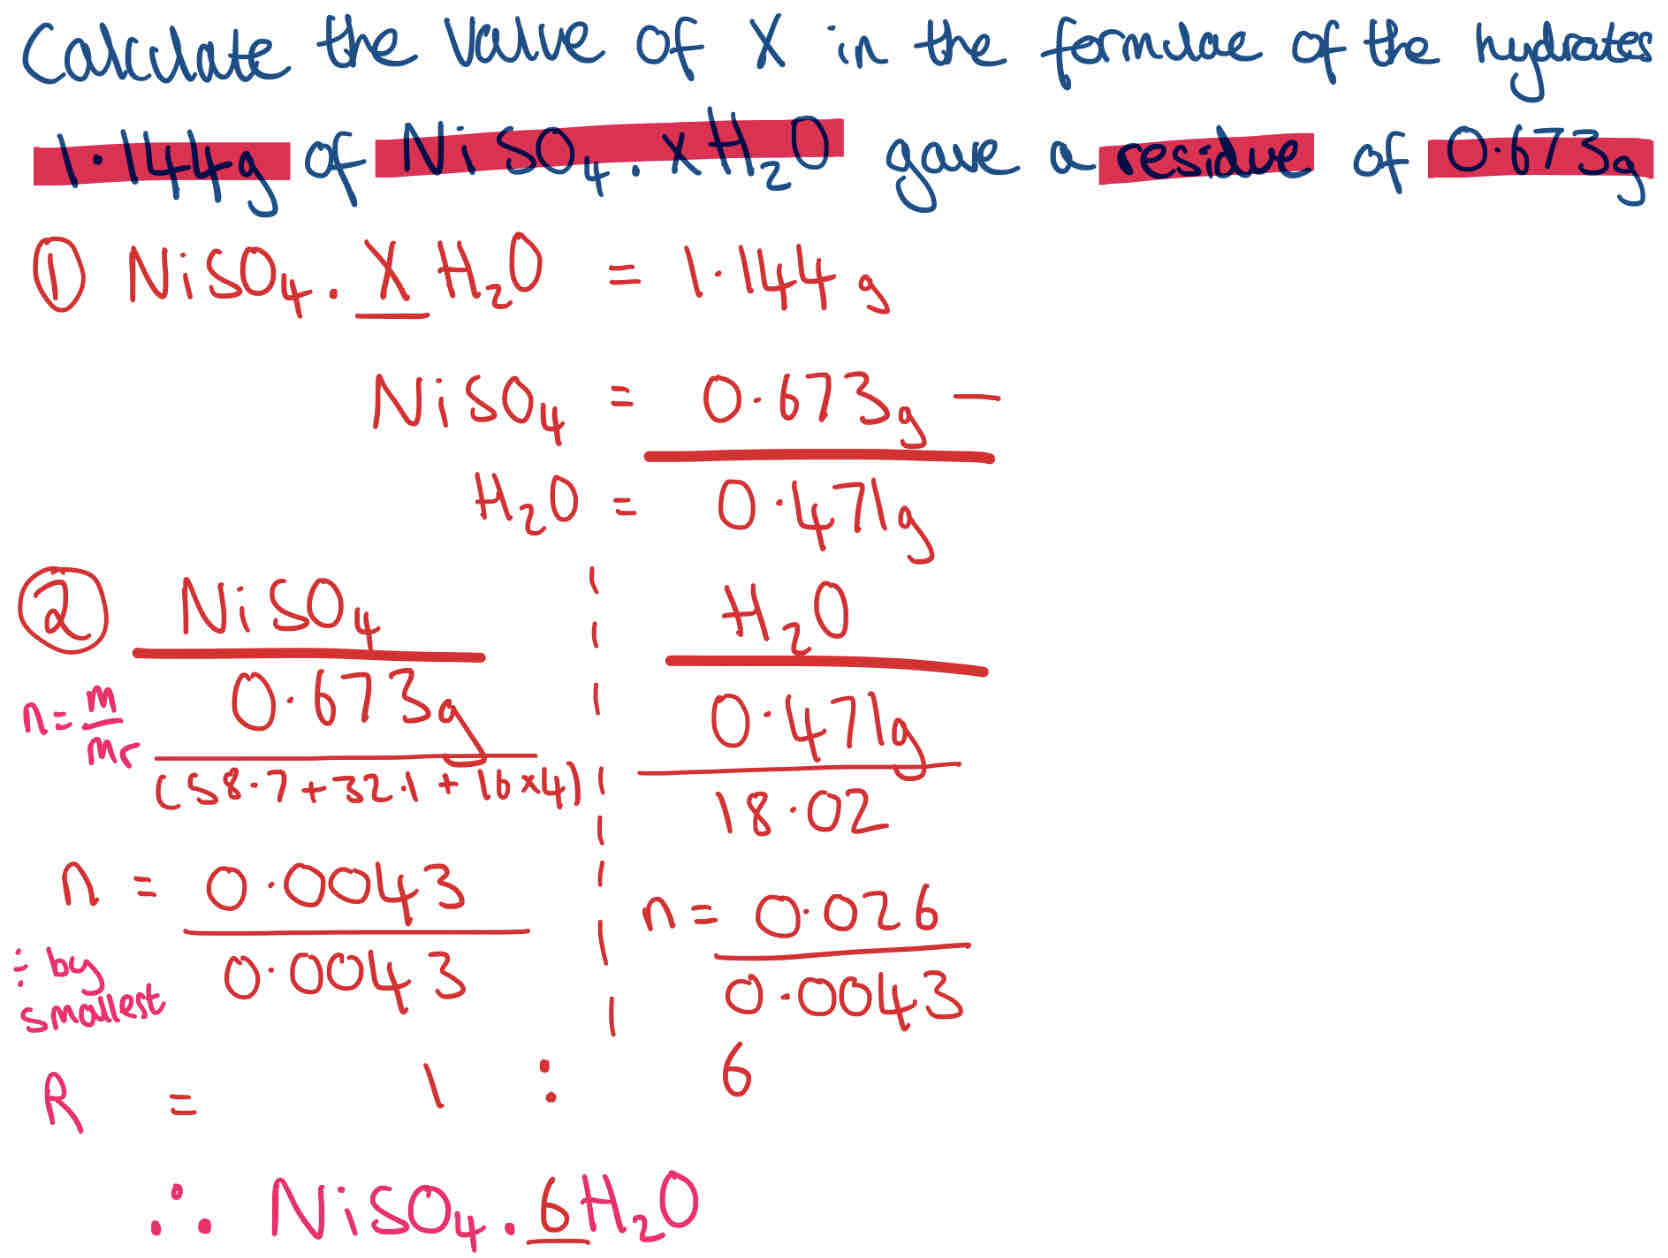 Calculate the value of X in the formulae of the hydrates
1.144g of NiSO₄.xH₂O gave a residue of 0.673g
① NiSO₄.XH₂O = 1.144g
NiSO₄ = 0.673g –
H₂O = 0.471g
② NiSO₄ H₂O
n=m/mr 0.673g/(58.7+32.1+16×4) 0.471g/18.02
n = 0.0043/0.0043 n = 0.026/0.0043
÷ by smallest
R = 1 : 6
∴ NiSO₄.6H₂O